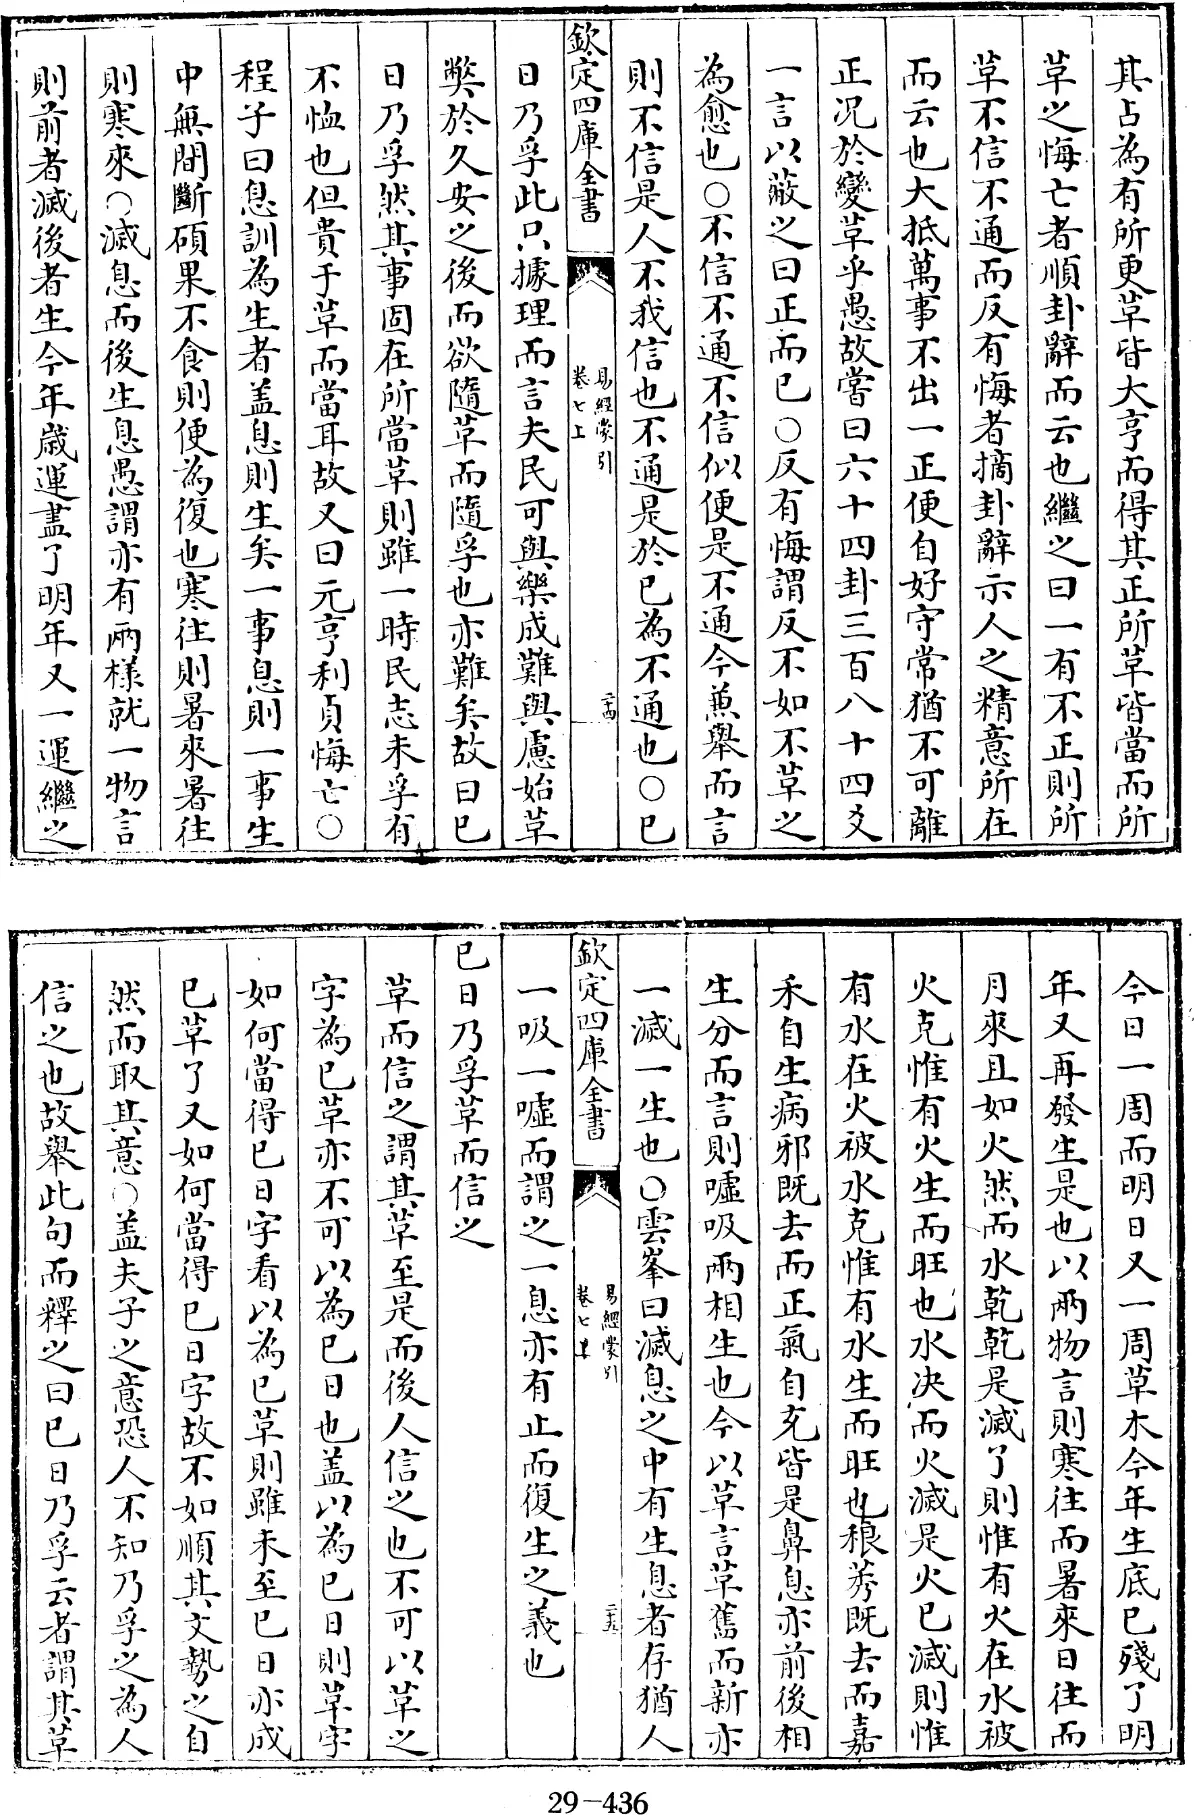 其占為有所更革皆大亨而得其正所革皆當而所
革之悔亡者順卦辭而云也繼之曰一有不正則所
革不信不通而反有悔者摘卦辭示人之精意所在
而云也大抵萬事不出一正便自好守常猶不可離
正况於變革乎愚故嘗曰六十四卦三百八十四爻
一言以蔽之曰正而已○反有悔謂反不如不革之
為愈也○不信不通不信似便是不通今兼舉而言
則不信是人不我信也不通是於已為不通也○已
欽定四庫全書
易經蒙引
卷七上
二十四
日乃孚此只據理而言夫民可與樂成難與慮始革
弊於久安之後而欲隨革而隨孚也亦難矣故曰已
日乃孚然其事固在所當革則雖一時民志未孚有
不恤也但貴于革而當耳故又曰元亨利貞悔亡○
程子曰息訓為生者盖息則生矣一事息則一事生
中無間斷碩果不食則便為復也寒往則暑來暑往
則寒來○滅息而後生息愚謂亦有兩樣就一物言
則前者滅後者生今年歲運盡了明年又一運繼之
今日一周而明日又一周草木今年生底已殘了明
年又再發生是也以兩物言則寒往而暑來日往而
月來且如火然而水乾乾是滅了則惟有火在水被
火克惟有火生而旺也水决而火滅是火已滅則惟
有水在火被水克惟有水生而旺也稂莠既去而嘉
禾自生病邪既去而正氣自充皆是鼻息亦前後相
生分而言則嘘吸兩相生也今以革言革舊而新亦
一滅一生也○雲峯曰滅息之中有生息者存猶人
欽定四庫全書
易經蒙引
卷七上
二十五
一吸一嘘而謂之一息亦有止而復生之義也
已日乃孚革而信之
革而信之謂其革至是而後人信之也不可以革之
字為已革亦不可以為已日也盖以為已日則革字
如何當得已日字看以為已革則雖未至已日亦成
已革了又如何當得已日字故不如順其文勢之自
然而取其意○盖夫子之意恐人不知乃孚之為人
信之也故舉此句而釋之曰已日乃孚云者謂其革
29-436